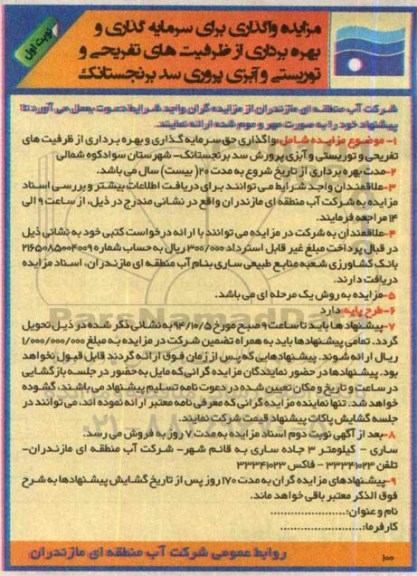 مزایده واگذاری برای سرمایه گذاری و
بهره برداری از ظرفیت های تفریحی و
توریستی و آبزی پروری سد برنجستانک
نوبت اول
شرکت آب منطقه ای مازندران از مزایده گران واجد شرایط دعوت بعمل می آورد تا
پیشنهاد خود را به صورت مهر و موم شده ارائه نمایند.
۱- موضوع مزایده شامل: واگذاری حق سرمایه گذاری و بهره برداری از ظرفیت های
تفریحی و توریستی و آبزی پرورش سد برنجستانک- شهرستان سوادکوه شمالی
۲-مدت بهره برداری از تاریخ شروع به مدت ۲۰( بیست) سال می باشد.
۳-علاقمندان واجد شرایط می توانند برای دریافت اطلاعات بیشتر و بررسی اسناد
مزایده به شرکت آب منطقه ای مازندران واقع در نشانی مندرج در ذیل، از ساعت ۹ الی
۱۴ مراجعه فرمایند.
۴-علاقمندان به شرکت در مزایده می توانند با ارائه درخواست کتبی خود به نشانی ذیل
در قبال پرداخت مبلغ غیر قابل استرداد ۳۰۰/۰۰۰ ریال به حساب شماره
بانک کشاورزی شعبه منابع طبیعی ساری بنام آب منطقه ای مازندران، اسناد مزایده
دریافت دارند.
۵-مزایده به روش یک مرحله ای می باشد.
۶-طرح پایه: دارد
ParsNamadData
۷-پیشنهادها باید تا ساعت ۹ صبح مورخ ۹۴/۱۰/۵ به نشانی ذکر شده در ذیل تحویل
گردد. تمامی پیشنهادها باید به همراه تضمین شرکت در مزایده به مبلغ ۱/۰۰۰/۰۰۰/۰۰۰
ریال ارائه شوند. پیشنهادهایی که پس از زمان فوق ارائه گردند قابل قبول نخواهد
بود. پیشنهادها در حضور نمایندگان مزایده گرانی که مایل به حضور در جلسه بازگشایی
در ساعت و تاریخ و مکان تعیین شده در دعوت نامه تسلیم پیشنهاد می باشند، گشوده
خواهد شد. تنها نماینده مزایده گرانی که معرفی نامه معتبر ارائه نموده اند، می توانند در
جلسه گشایش پاکات پیشنهاد قیمت شرکت نمایند.
۸-بعد از آگهی نوبت دوم اسناد مزایده به مدت ۷ روز به فروش می رسد.
ساری - کیلومتر ۳ جاده ساری به قائم شهر- شرکت آب منطقه ای مازندران-
تلفن ۳۳۳۴۱۰۲۳ - فاکس ۳۳۳۴۱۰۲۳
۹-پیشنهادهای مزایده گران به مدت ۱۷۰ روز پس از تاریخ گشایش پیشنهادها به شرح
فوق الذکر معتبر باقی خواهد ماند.
نام و عنوان:........................
کارفرما:........................
روابط عمومی شرکت آب منطقه ای مازندران
۱۰۰